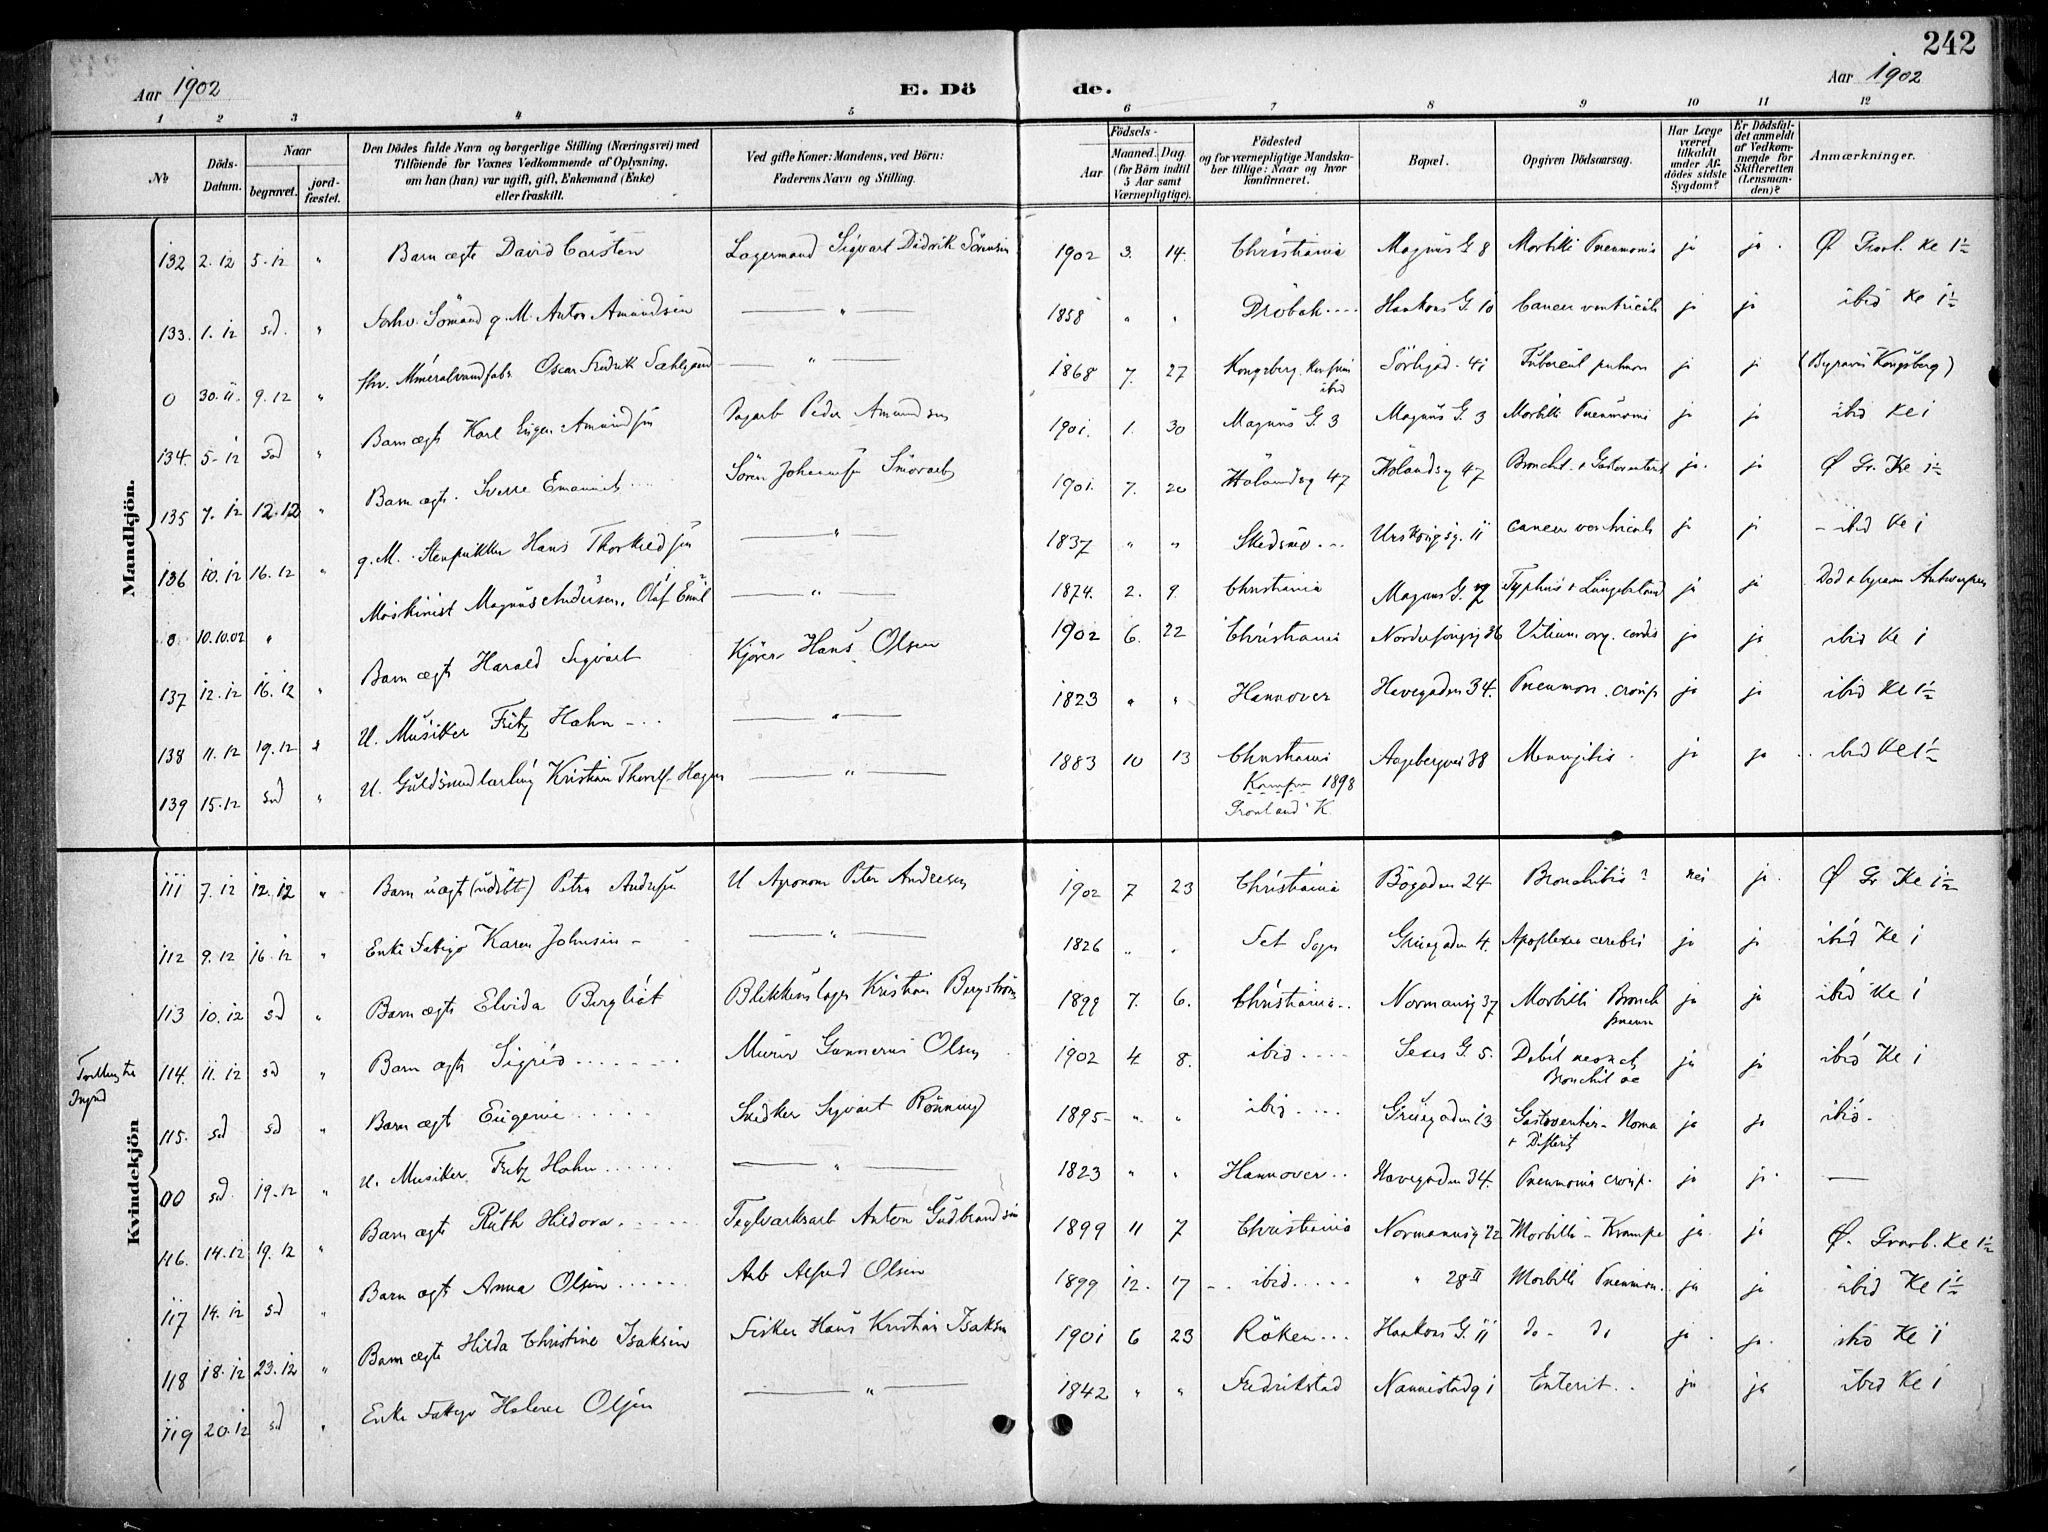 242
Aar 1902
E. Dö
de.
Aar 1902
1 2 3 4 5 6 7 8 9 10 11 12
№
Döds-Datum.
Naar
begravet.
jord-fæstet.
Den Dödes fulde Navn og borgerlige Stilling (Næringsvei) med
Tilföiende for Voxnes Vedkommende af Oplysning,
om han (hun) var ugift, gift, Enkemand (Enke)
eller fraskilt.
Ved gifte Koner: Mandens, ved Börn:
Faderens Navn og Stilling.
Födsels-
Aar
Maaned. Dag.
(for Börn indtil
5 Aar samt
Værnepligtige).
Födested
og for værnepligtige Mandska-
ber tillige: Naar og hvor
konfirmeret.
Bopæl.
Opgiven Dödsaarsag.
Har Læge
været
tilkaldt
under Af-
dödes sidste
Sygdom?
Er Dödsfal-
det anmeldt
af Vedkom-
mende for
Skifteretten
(Lensman-
den)?
Anmærkninger.
Mandkjön.
132 2.12 5.12 " Barn ægte David Carsten Lagermand Sigvart Didrik Sörensen 1902 3. 14. Christiania Magnus G 8 Morbilli Pneumonia ja ja. Ø Gravl. Ke 1½
133. 1.12 sd. " Forhv. Sömand g. M. Anton Amundsen — " — 1858 " " Dröbak.... Haakons G. 10 Cancer ventriculi ja ja ibid Ke 1½
0 30.11. 9.12 " fhv. Mineralvandfabr. Oscar Fredrik — " — 1868 7. 27 Kongsberg. ibid 41 Tubercul pulmon ja ja (Bygravn Kongsberg)
134. 5-12 sd " Barn ægte Karl Eugen Amundsen Dagarb Peder Amundsen 1901. 1. 30 Magnus G. 3 Magnus G. 3 Morbilli Pneumoni ja ja ibid Ke 1
135 7.12 12.12 " Barn ægte. Sverre Emanuel..... Sören Johannesen 1901. 7. 20 Hölandsg 47 Hölandsg 47 Bronchit. + Gastroenterit ja. ja Ø Gr. Ke 1½
136 10.12 16.12 " g. M. Stenpukker Hans Thorkildsen — " — 1837 " " Skedsmo... Urskougsg. 11 cancer ventriculi ja ja - ibid Ke 1
0 10.10.02 " Maskinist Magnus Andersen, Olaf Emil — " — 1874. 2. 9. Christiania Magnus G. Typhus + ja ja Död + begravn Antwerpen
137 12.12 16.12 " Barn ægte Harald Sigvart Kjörer Hans Olsen 1902 6. 22 Christiania 36 Vitium org. cordis ja ja ibid Ke 1
138 11.12 19.12 " U. Musiker Fritz Hahn — " — 1823 " " Hannover Havegaden 34. Pneumon. croup ja ja ibid Ke 1½
139 15.12 sd " U. Guldsmedlærling Kristian Thorolf Hagen — " — 1883 10 13 Christiania Kampen 1898 Grönland K. Aagebergvei 38 Meningitis. ja ja ibid Ke 1½
Kvindekjön
111 7.12 12.12 " Barn uægte (udöbt) Petra Andresen U Agronom Peter Andresen 1902 7 23 Christiania Bögaden 24 Bronchitis? nei ja. Ø Gr Ke 1½
112 9.12 16.12 " Enke Fattige Karen Johnsen - — " — 1826 " " Fet Sogn Grüegaden 4. Apoplexia cerebri ja ja ibid Ke 1
113 10.12 sd " Barn ægte Elvida Bergliot Blikkenslager Kristian Bergström 1899 7. 6. Christiania.. Normansg 37 Morbilli Bronch pneum ja ja ibid Ke 1
Tvilling
114. 11.12 sd " Barn ægte Sigrid........ Murer Gunnerius Olsen 1902 4. 8. ibid.... Sexes G. 5. Debil Bronchit ac ja ja ibid Ke 1
115. sd sd " Barn ægte Eugenie...... Snedker Sigvart Rönning 1895- " " ibid.... Grüegaden 13 Gastroenter- Noma + Difterit ja ja ibid.
00 sd. 19.12 " U. Musiker Fritz Hahn...... — " — 1823 " " Hannover.. Havegaden 34. Pneumonia croup. ja ja. —
116. 14.12 19.12 " Barn ægte Ruth Hildora...... Teglværksarb Anton Gudbrandsen 1899 11 7 Christiania Normannsg 22 Morbilli - Krampe ja. ja Ø. Gravl. Ke 1½
117 14.12 sd " Barn ægte Anna Olsen...... Arb Alfred Olsen 1899 12. 17 - . ibid..... " 28 II Morbilli Pneumon.. ja ja ibid Ke 1½
118 18.12 23.12 " Barn ægte Hilda Christine Isaksen Fisker Hans Kristian Isaksen 1901 6 23 Röken... Haakons G. 11 do - do ja. ja. ibid Ke 1
119 20.12 sd " Enke Fattige Helene Olsen — " — 1842 " " Fredrikstad Nannestadg 1 Enterit.. ja ja ibid Ke 1